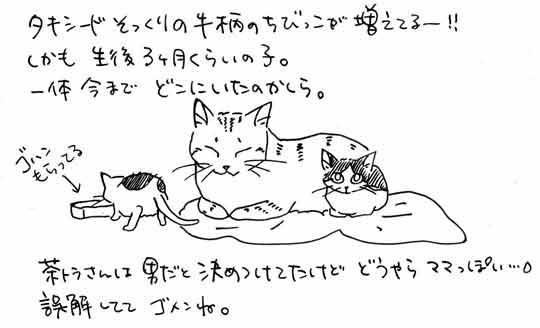 タキシードそっくりの牛柄のちびっこが増えてるー!!
しかも 生後3ヶ月くらいの子。
一体今まで どこにいたのかしら。
ゴハン
もらってる
茶トラさんは 男だと決めつけてたけど どうやら ママっぽい…。
誤解してて ゴメンね。